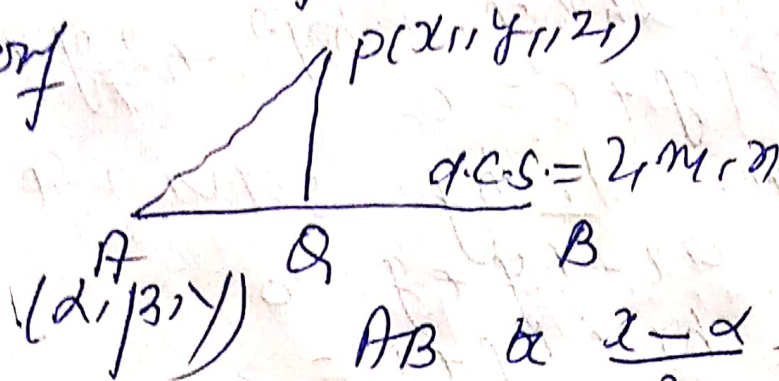 P(x₁, y₁, z₁)
d.c.s. = l, m, n
A Q B
(α, β, γ)
AB x - α